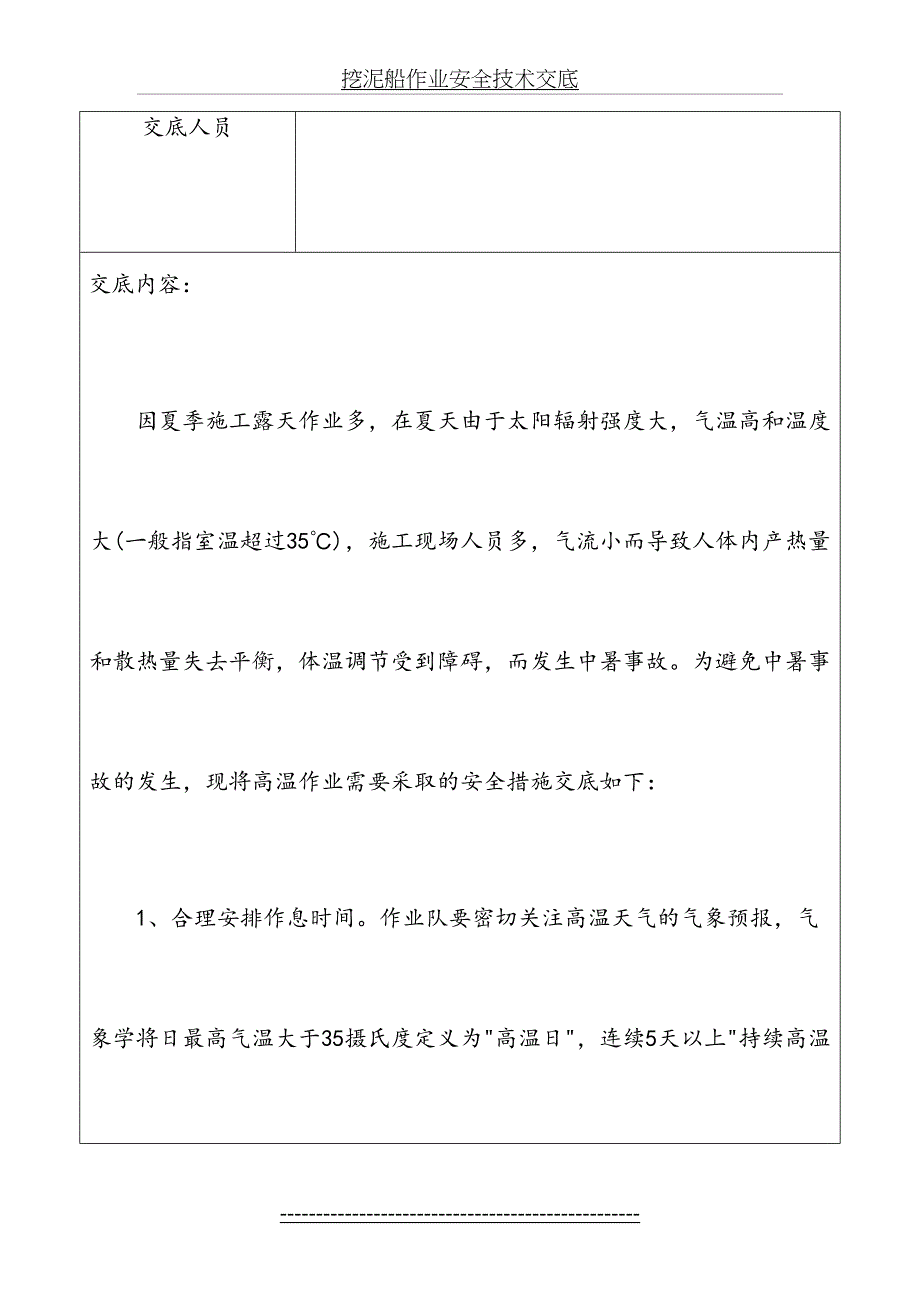 挖泥船作业安全技术交底
交底人员
交底内容：
因夏季施工露天作业多，在夏天由于太阳辐射强度大，气温高和温度
大(一般指室温超过35℃)，施工现场人员多，气流小而导致人体内产热量
和散热量失去平衡，体温调节受到障碍，而发生中暑事故。为避免中暑事
故的发生，现将高温作业需要采取的安全措施交底如下：
1、合理安排作息时间。作业队要密切关注高温天气的气象预报，气
象学将日最高气温大于35摄氏度定义为"高温日"，连续5天以上"持续高温
--------------------------------------------------